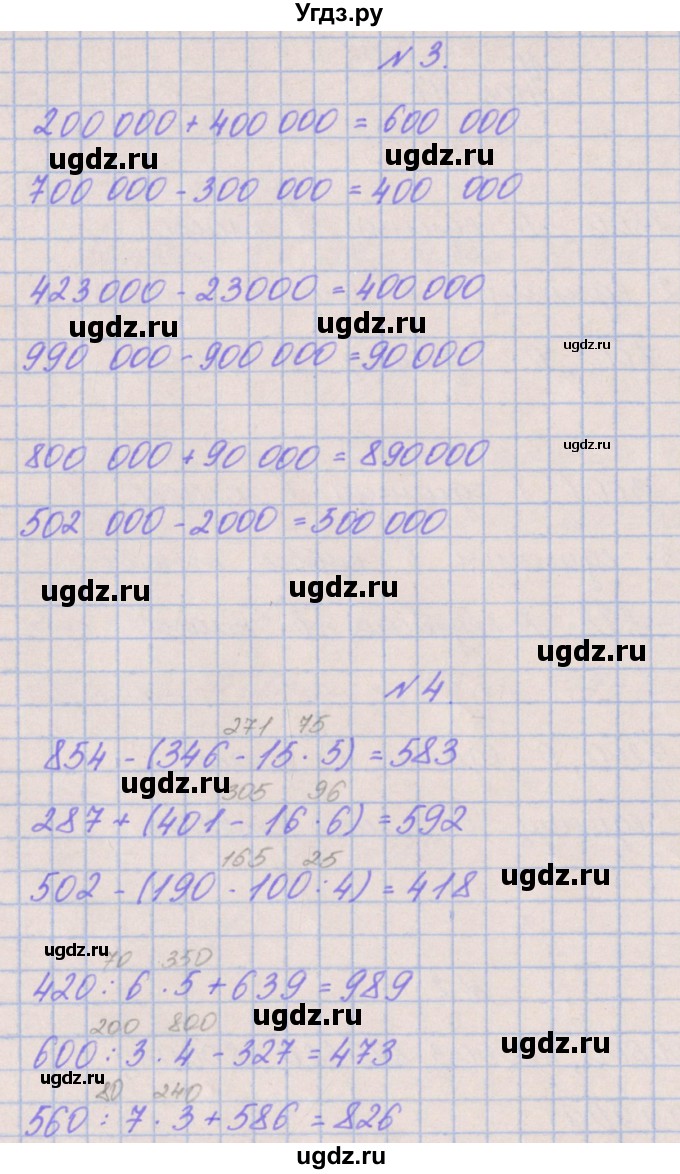 Угдз.ру
N 3.
200 000 + 400 000 = 600 000
ugdz.ru ugdz.ru
700 000 - 300 000 = 400 000
423 000 - 23000 = 400 000
ugdz.ru ugdz.ru
990 000 - 900 000 = 90 000
ugdz.ru
ugdz.ru
800 000 + 90 000 = 890000
502 000 - 2000 = 500 000
ugdz.ru ugdz.ru
ugdz.ru
N 4.
271 75
854 - (346 - 15 · 5) = 583
ugdz.ru
305 96
287 + (401 - 16 · 6) = 592
165 25
502 - (190 - 100 : 4) = 418
ugdz.ru
ugdz.ru
70 350
420 : 6 · 5 + 639 = 989
ugdz.ru
200 800
600 : 3 · 4 - 327 = 473
ugdz.ru
ugdz.ru
80 240
560 : 7 · 3 + 586 = 826
ugdz.ru